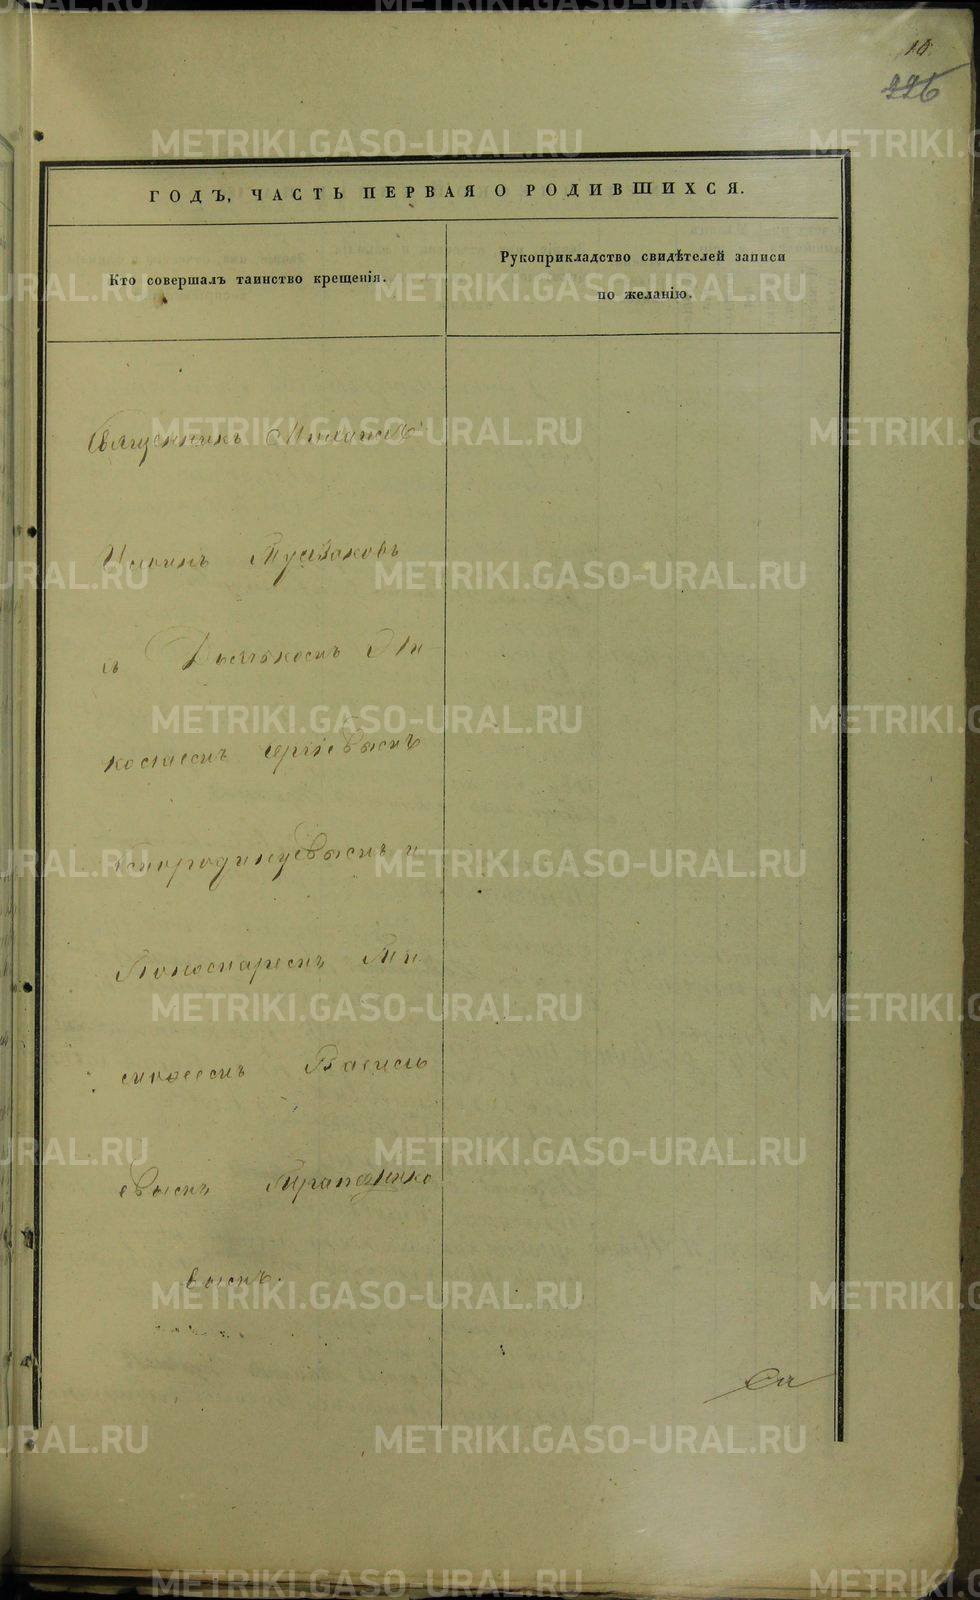 10.
226
ГОДЪ, ЧАСТЬ ПЕРВАЯ О РОДИВШИХСЯ.
Кто совершалъ таинство крещенія.
Рукоприкладство свидѣтелей записи
по желанію.
Священникъ
съ Дьячкомъ Ни
колаемъ Сергіевымъ
Смородинцевымъ и
Пономаремъ Ти
мофеемъ Василь
евымъ
вымъ.
METRIKI.GASO-URAL.RU